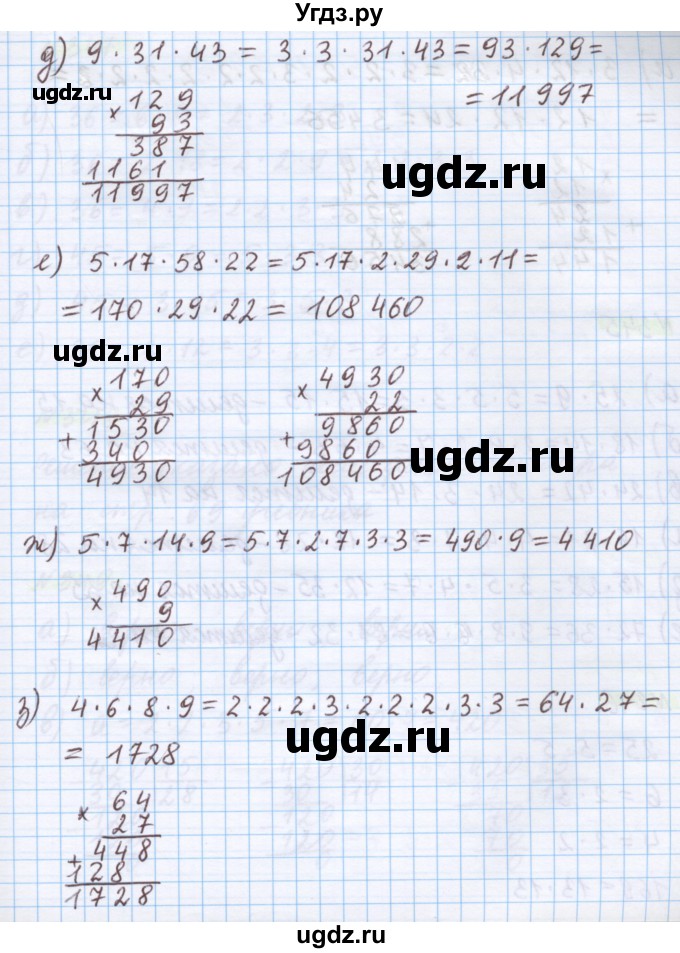 Угдз.ру
д) 9 · 31 · 43 = 3 · 3 · 31 · 43 = 93 · 129 =
= 11 997
ugdz.ru
× 129
93
387
1161
11997
ugdz.ru
ugdz.ru
е) 5 · 17 · 58 · 22 = 5 · 17 · 2 · 29 · 2 · 11 =
= 170 · 29 · 22 = 108 460
ugdz.ru
× 170
29
+ 1530
340
4930
× 4930
22
+ 9860
9860
108460
ugdz.ru
ж) 5 · 7 · 14 · 9 = 5 · 7 · 2 · 7 · 3 · 3 = 490 · 9 = 4 410
× 490
9
4410
ugdz.ru
з) 4 · 6 · 8 · 9 = 2 · 2 · 2 · 3 · 2 · 2 · 2 · 3 · 3 = 64 · 27 =
= 1728
ugdz.ru
× 64
27
+ 448
128
1728
ugdz.ru
ugdz.ru